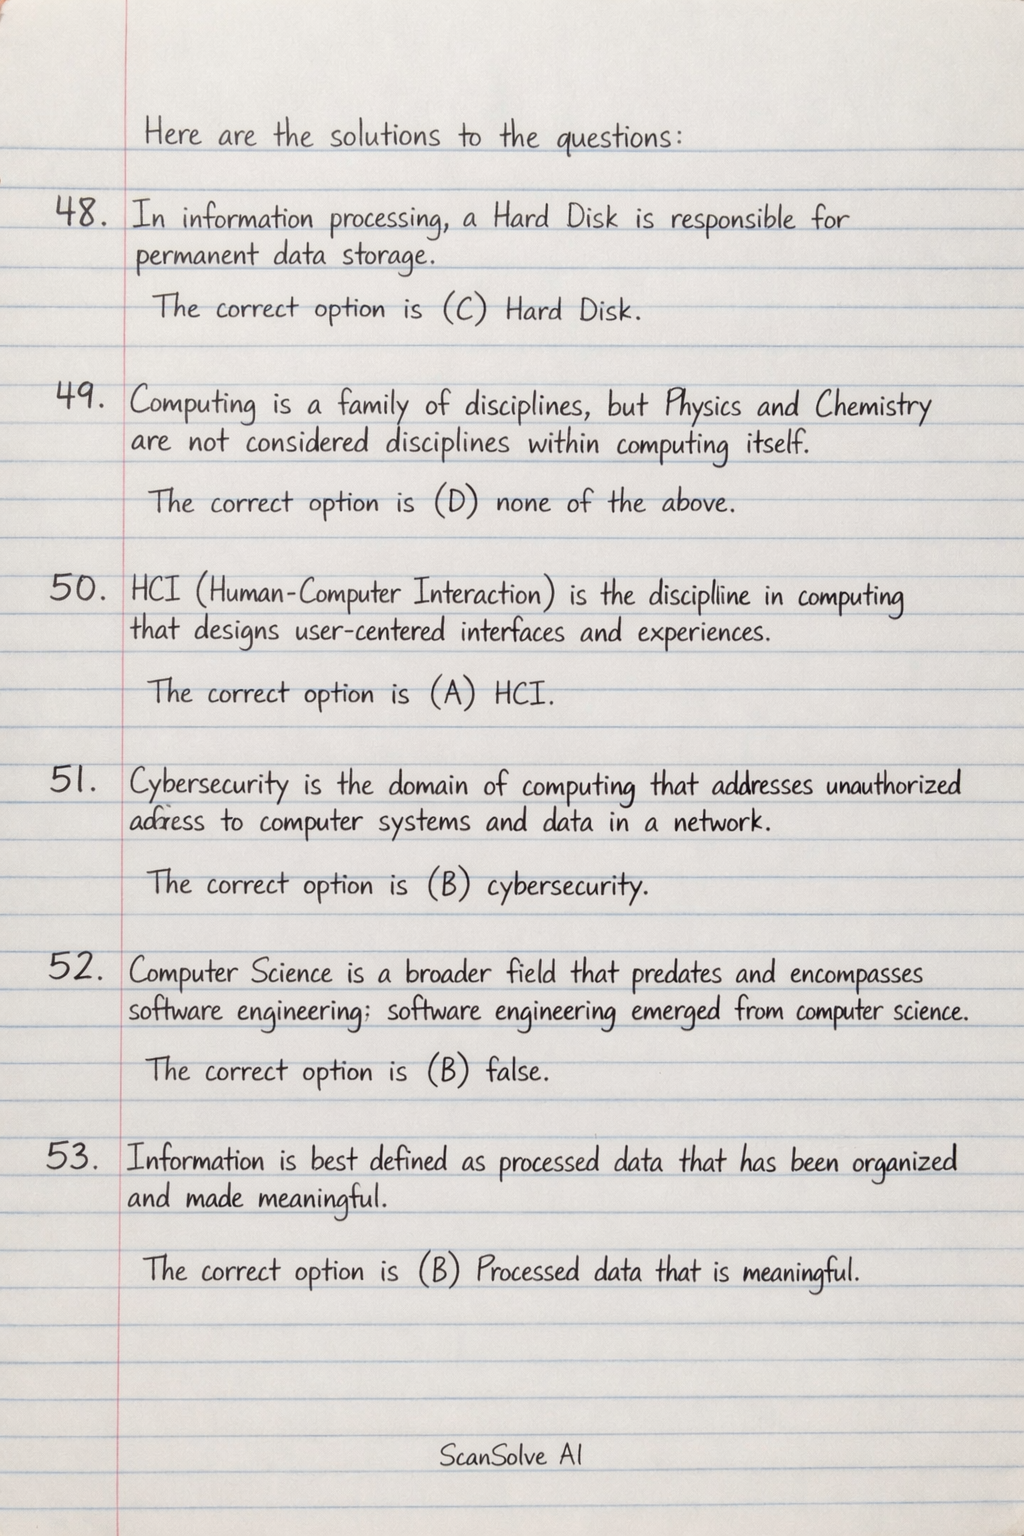 Here are the solutions to the questions:
48. In information processing, a Hard Disk is responsible for
permanent data storage.
The correct option is (C) Hard Disk.
49. Computing is a family of disciplines, but Physics and Chemistry
are not considered disciplines within computing itself.
The correct option is (D) none of the above.
50. HCI (Human-Computer Interaction) is the discipline in computing
that designs user-centered interfaces and experiences.
The correct option is (A) HCI.
51. Cybersecurity is the domain of computing that addresses unauthorized
to computer systems and data in a network.
The correct option is (B) cybersecurity.
52. Computer Science is a broader field that predates and encompasses
software engineering; software engineering emerged from computer science.
The correct option is (B) false.
53. Information is best defined as processed data that has been organized
and made meaningful.
The correct option is (B) Processed data that is meaningful.
ScanSolve AI